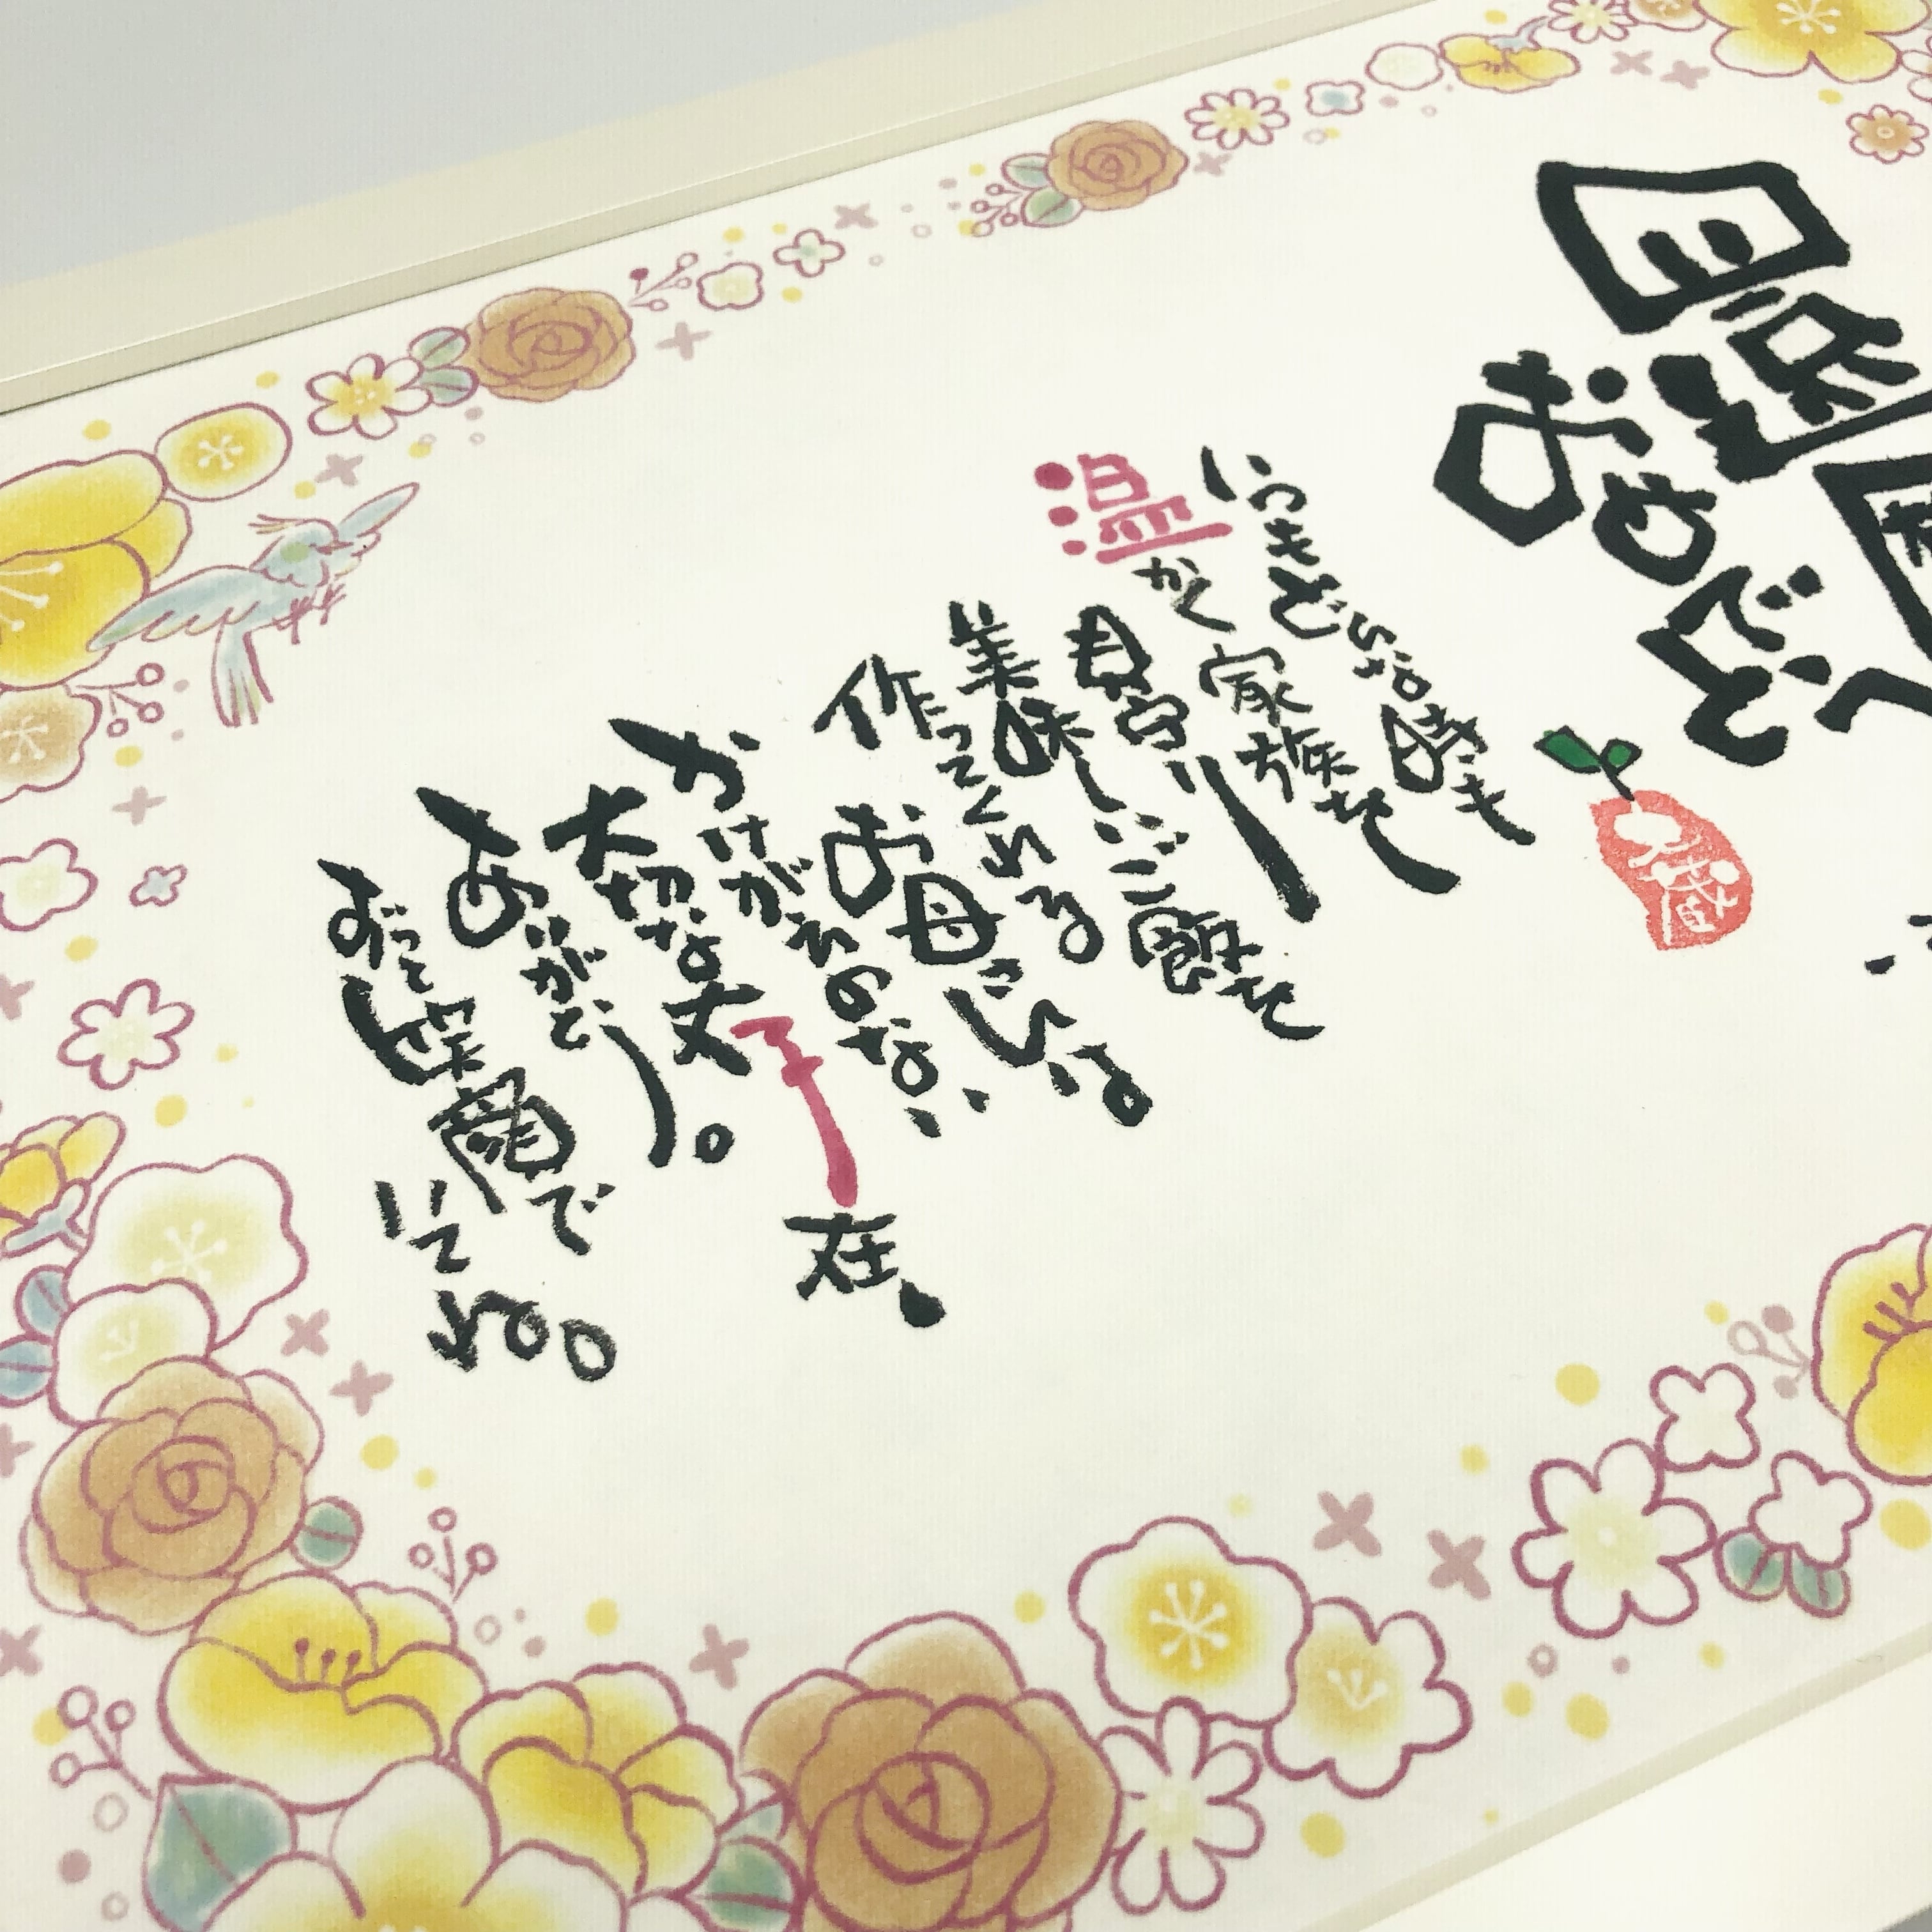 還
おめでとう
いつもどんな時も
温かく家族を
見守り
美味しいご飯を
作ってくれる
お母さんは
かけがえのない
大切な存在。
ありがとう。
ずっと笑顔で
いてね。